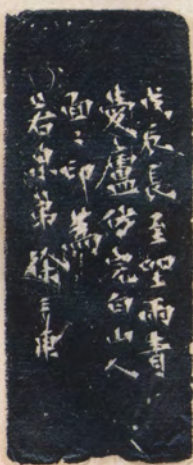 戊辰長至雨
愛廬仿完白山人
面面印為
若泉弟徐三庚